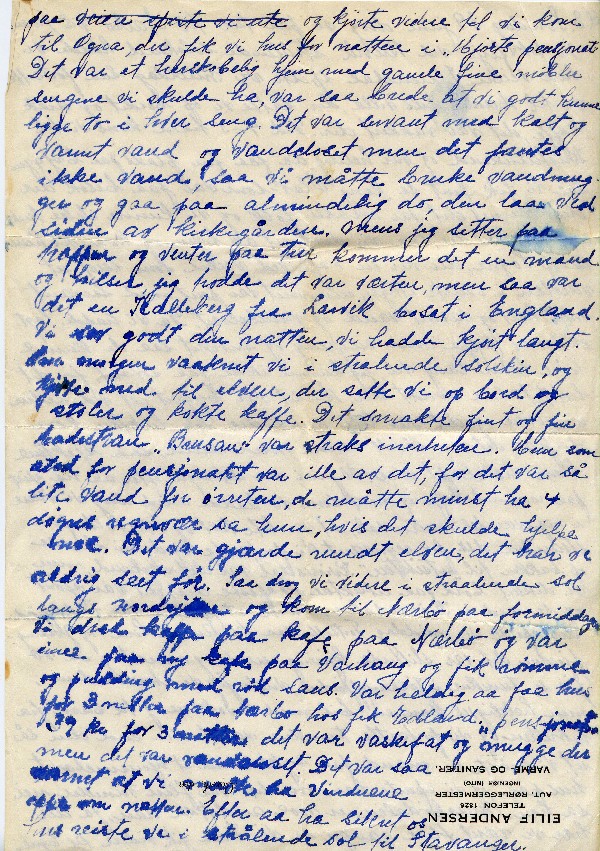 paa veien spiste vi ute og kjørte videre til vi kom
til Ogna der fik vi hus for natten i "Hjorts pensjonat
Det var et herskabelig hjem med gamle fine møbler
sengene vi skulde ha, var saa brede at vi godt kunne
ligge to i hver seng. Det var servant med kalt og
varmt vand og vandcloset men det fantes
ikke vand, saa vi måtte bruke vandmug-
ger og gaa paa almindelig do, den laa ved
siden av kirkegården. Mens jeg sitter paa
trappen og venter paa kommer det en mand
og hilser, jeg trodde det var verten, men saa var
det en Kalleberg fra Larvik bosat i England.
Vi sov godt den natten, vi hadde kjørt langt.
morgen vaaknet vi i straalende solskin, og
kjørte ned til elven, der satte vi op bord og
stoler og kokte kaffe. Det smakte fint og fine
var straks inerheten. som
for pensjonatet var ille av det, for det var så
lite vand for ørreten, de måtte minst ha 4
døgns regnvær sa hun, hvis det skulde hjelpe
noe. Det var gjærde rundt elven, det har vi
aldrig seet før. Saa drog vi videre i straalende sol
langs og kom til Nærbø paa formiddagen
Vi drak kaffe paa kafe paa Nærbø og var
paa Varhaug og fik rømme
og pudding med rød saus. Var heldig aa faa hus
for 3 netter paa Nærbø hos frk "pensjonat
39 kr for 3 netter det var vaskefat og mugge der
men det var vandcloset. Det var saa
varmet at vi måtte ha vinduene
oppe om natten. Efter aa ha sikret os
hus reiste vi i strålende sol til Stavanger.
EILIF ANDERSEN
AUT. RØRLEGGERMESTER
TELEFON 1826
(INGENIØR NITO)
VARME- OG SANITÆR.